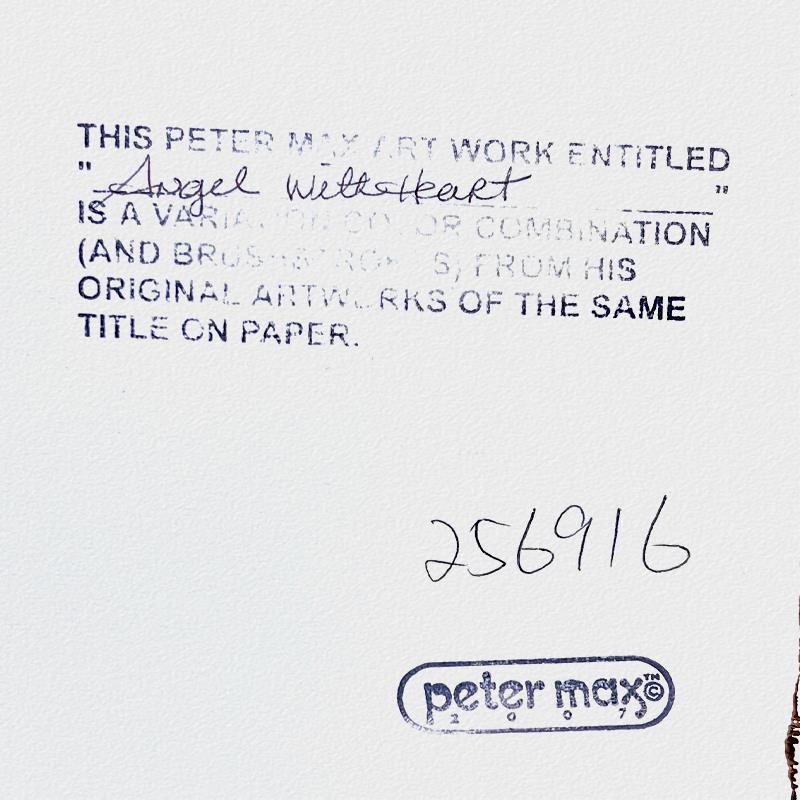 THIS PETER MAX ART WORK ENTITLED
" Angel With Heart "
IS A VARIATION COLOR COMBINATION
(AND BRUSHSTROKES) FROM HIS
ORIGINAL ARTWORKS OF THE SAME
TITLE ON PAPER.
256916
peter max™©
2007